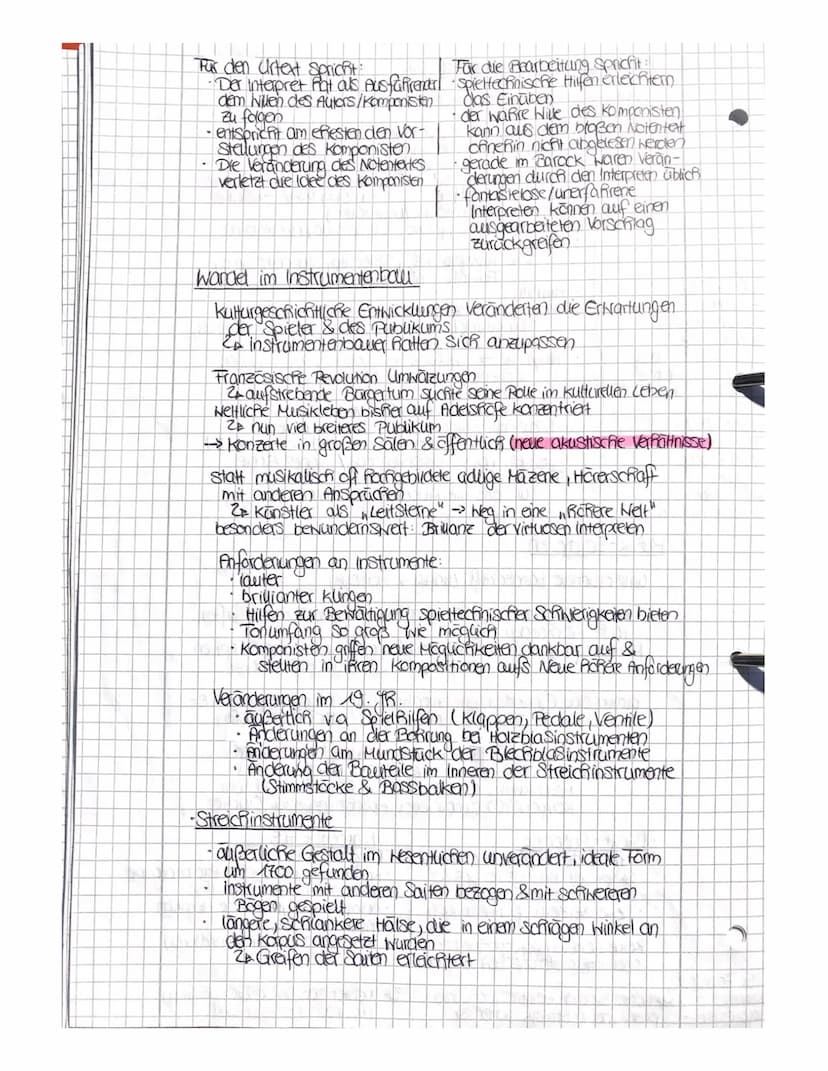 Für den Urtext spricht:
· Der Interpret hat als Ausführender
dem Willen des Autors/Komponisten
zu folgen
· entspricht am ehesten den Vor-
stellungen des Komponisten
· Die Veränderung des Notentextes
verletzt die Idee des Komponisten
Für die Bearbeitung spricht:
· spieltechnische Hilfen erleichtern
das Einüben
· der wahre Wille des Komponisten
kann aus dem bloßen Notentext
ohnehin nicht abgelesen werden
· gerade im Barock waren Verän-
derungen durch den Interpreten üblich
· fantasielose/unerfahrene
Interpreten können auf einen
ausgearbeiteten Vorschlag
zurückgreifen
Wandel im Instrumentenbau
kulturgeschichtliche Entwicklungen veränderten die Erwartungen
der Spieler & des Publikums
↳ Instrumentenbauer hatten sich anzupassen
Französische Revolution Umwälzungen
↳ aufstrebende Bürgertum suchte seine Rolle im kulturellen Leben
weltliche Musikleben bisher auf Adelshöfe konzentriert
↳ nun viel breiteres Publikum
→ Konzerte in großen Sälen & öffentlich (neue akustische Verhältnisse)
statt musikalisch oft hochgebildete adlige Mäzene, Hörerschaft
mit anderen Ansprüchen
↳ Künstler als „Leitsterne" → Weg in eine „höhere Welt"
besonders bewundernswert: Brillanz der virtuosen Interpreten
Anforderungen an Instrumente:
· lauter
· brillianter klingen
· Hilfen zur Bewältigung spieltechnischer Schwierigkeiten bieten
· Tonumfang so groß wie möglich
· Komponisten griffen neue Möglichkeiten dankbar auf &
stellten in ihren Kompositionen aufs Neue höhere Anforderungen
Veränderungen im 19. Jh.
· äußerlich va Spielhilfen (Klappen, Pedale, Ventile)
· Änderungen an der Bohrung bei Holzblasinstrumenten
· Änderungen am Mundstück der Blechblasinstrumente
· Änderung der Bauteile im Inneren der Streichinstrumente
(Stimmstöcke & Bassbalken)
· Streichinstrumente
· äußerliche Gestalt im Wesentlichen unverändert, ideale Form
um 1700 gefunden
· Instrumente mit anderen Saiten bezogen & mit schwereren
Bögen gespielt
· längere, schlankere Hälse, die in einem schrägen Winkel an
den Korpus angesetzt wurden
↳ Greifen der Saiten erleichtert